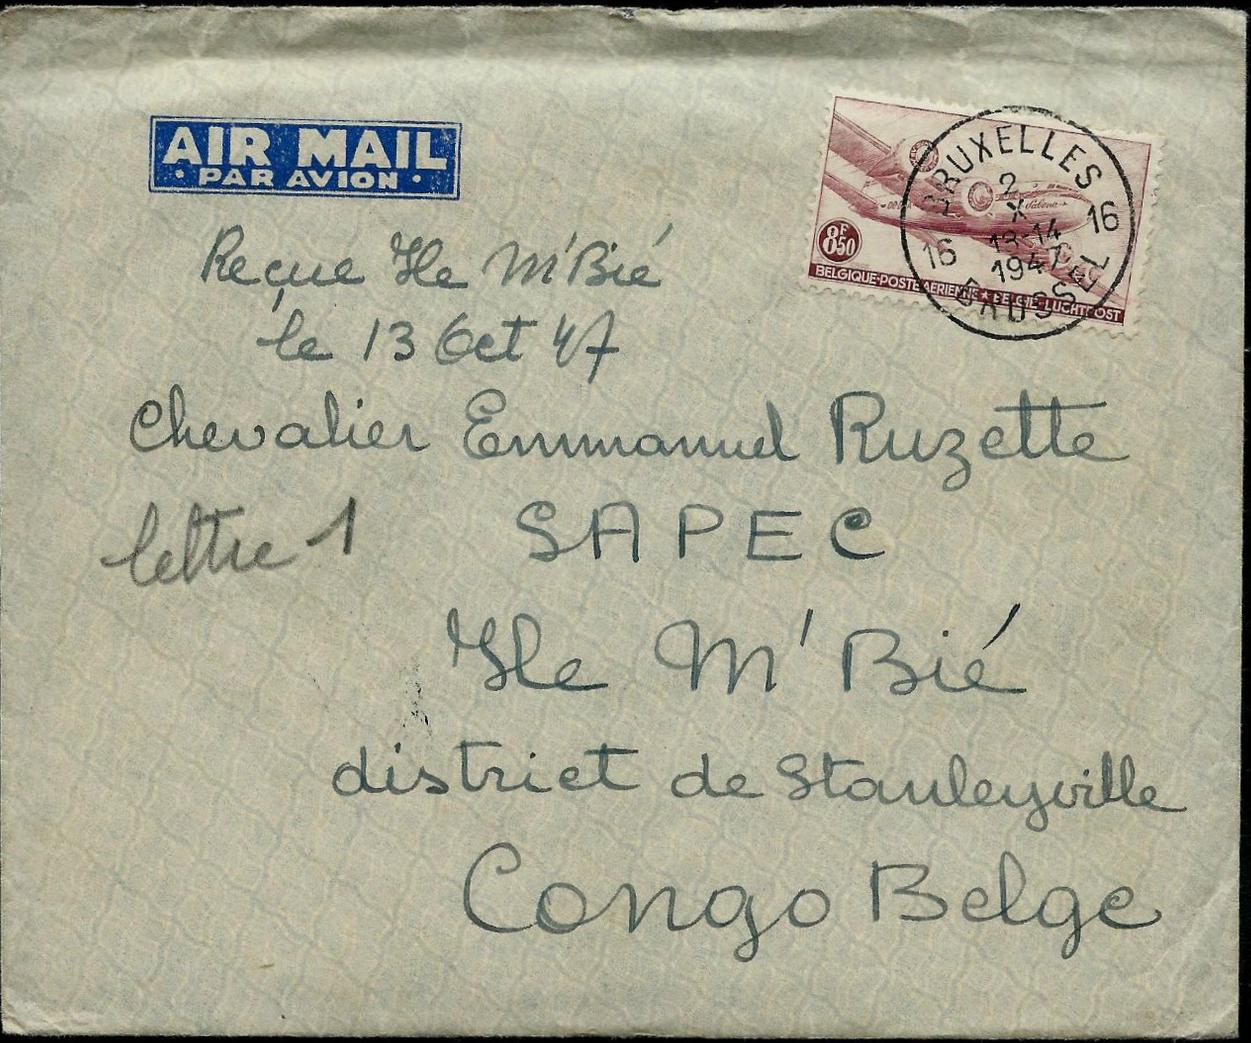 AIR MAIL
· PAR AVION ·
BRUXELLES
2
X
13-14
1947
16
16
BRUSSEL
Sabena
8F50
BELGIQUE-POSTE AERIENNE ★ BELGIE-LUCHTPOST
Reçue Ile M'Bié
le 13 Oct 47
Chevalier Emmanuel Ruzette
lettre 1
SAPEC
Ile M'Bié
district de Stanleyville
Congo Belge